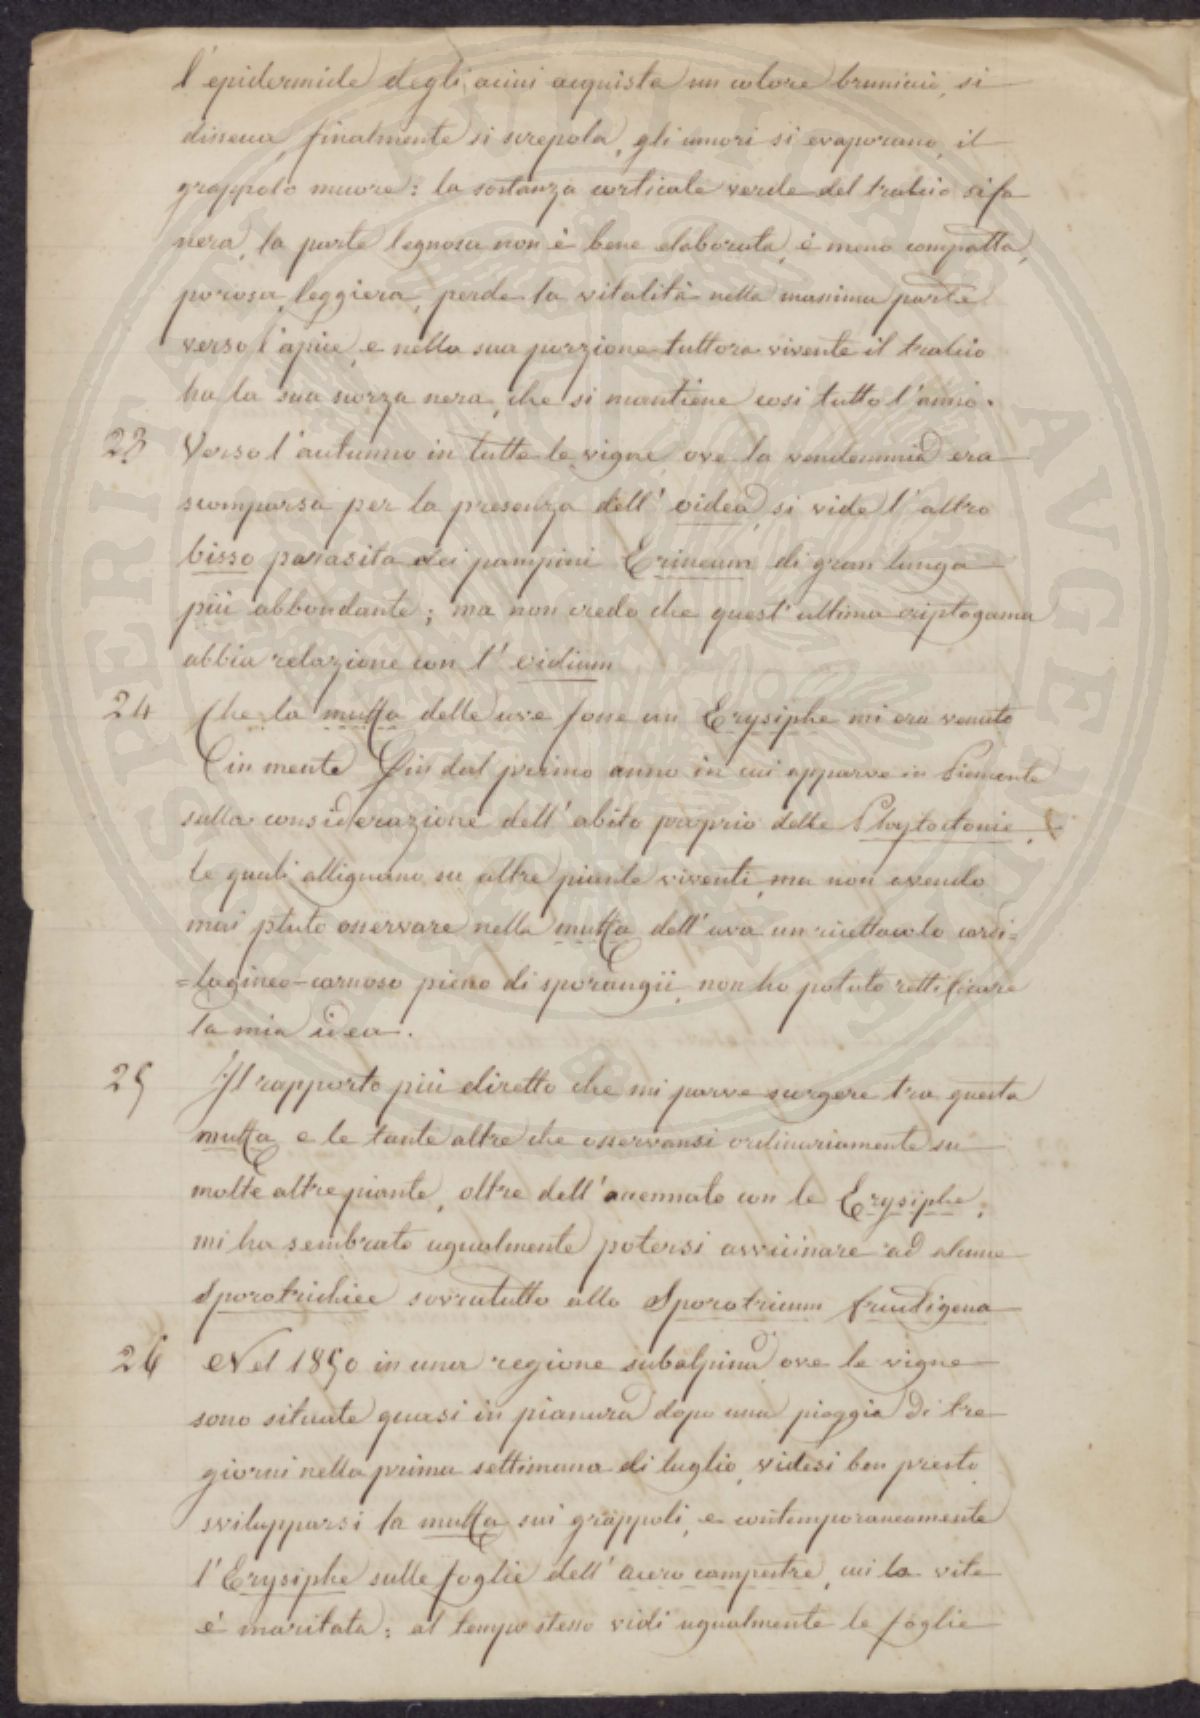 l'epidermide degli acini acquista un colore bruniccio, si
dissecca, finalmente si screpola, gli umori si evaporano, il
grappolo muore: la sostanza corticale verde del tralcio si fa
nera, la parte legnosa non è bene elaborata, è meno compatta,
porosa, leggiera, perde la vitalità nella massima parte
verso l'apice, e nella sua porzione tuttora vivente il tralcio
ha la sua scorza nera, che si mantiene cosi tutto l'anno.
23 Verso l'autunno in tutte le vigne ove la vendemmia era
scomparsa per la presenza dell'oidea, si vide l'altro
bisso parasita dei pampini Erineum di gran lunga
più abbondante; ma non credo che quest'ultima criptogama
abbia relazione con l'oidium
24 Che la muffa delle uve fosse un Erysiphe mi era venuto
in mente fin dal primo anno in cui apparve in Piemonte
sulla considerazione dell'abito proprio delle Phytoctonie,
le quali allignano su altre piante viventi, ma non avendo
mai ptuto osservare nella muffa dell'uva un ricettacolo carti=
=lagineo-carnoso pieno di sporangii, non ho potuto rettificare
la mia idea.
25 Il rapporto più diretto che mi parve surgere tra questa
muffa e le tante altre che osservansi ordinariamente su
molte altre piante, oltre dell'accennato con le Erysiphe,
mi ha sembrato ugualmente potersi avvicinare ad alcune
Sporotrichiee sovratutto allo Sporotricum fructigena
26 Nel 1850 in una regione subalpina ove le vigne
sono situate quasi in pianura dopo una pioggia di tre
giorni nella prima settimana di luglio, videsi ben presto
svilupparsi la muffa sui grappoli, e contemporaneamente
l'Erysiphe sulle foglie dell'acero campestre, cui la vite
è maritata; al tempo stesso vidi ugualmente le foglie